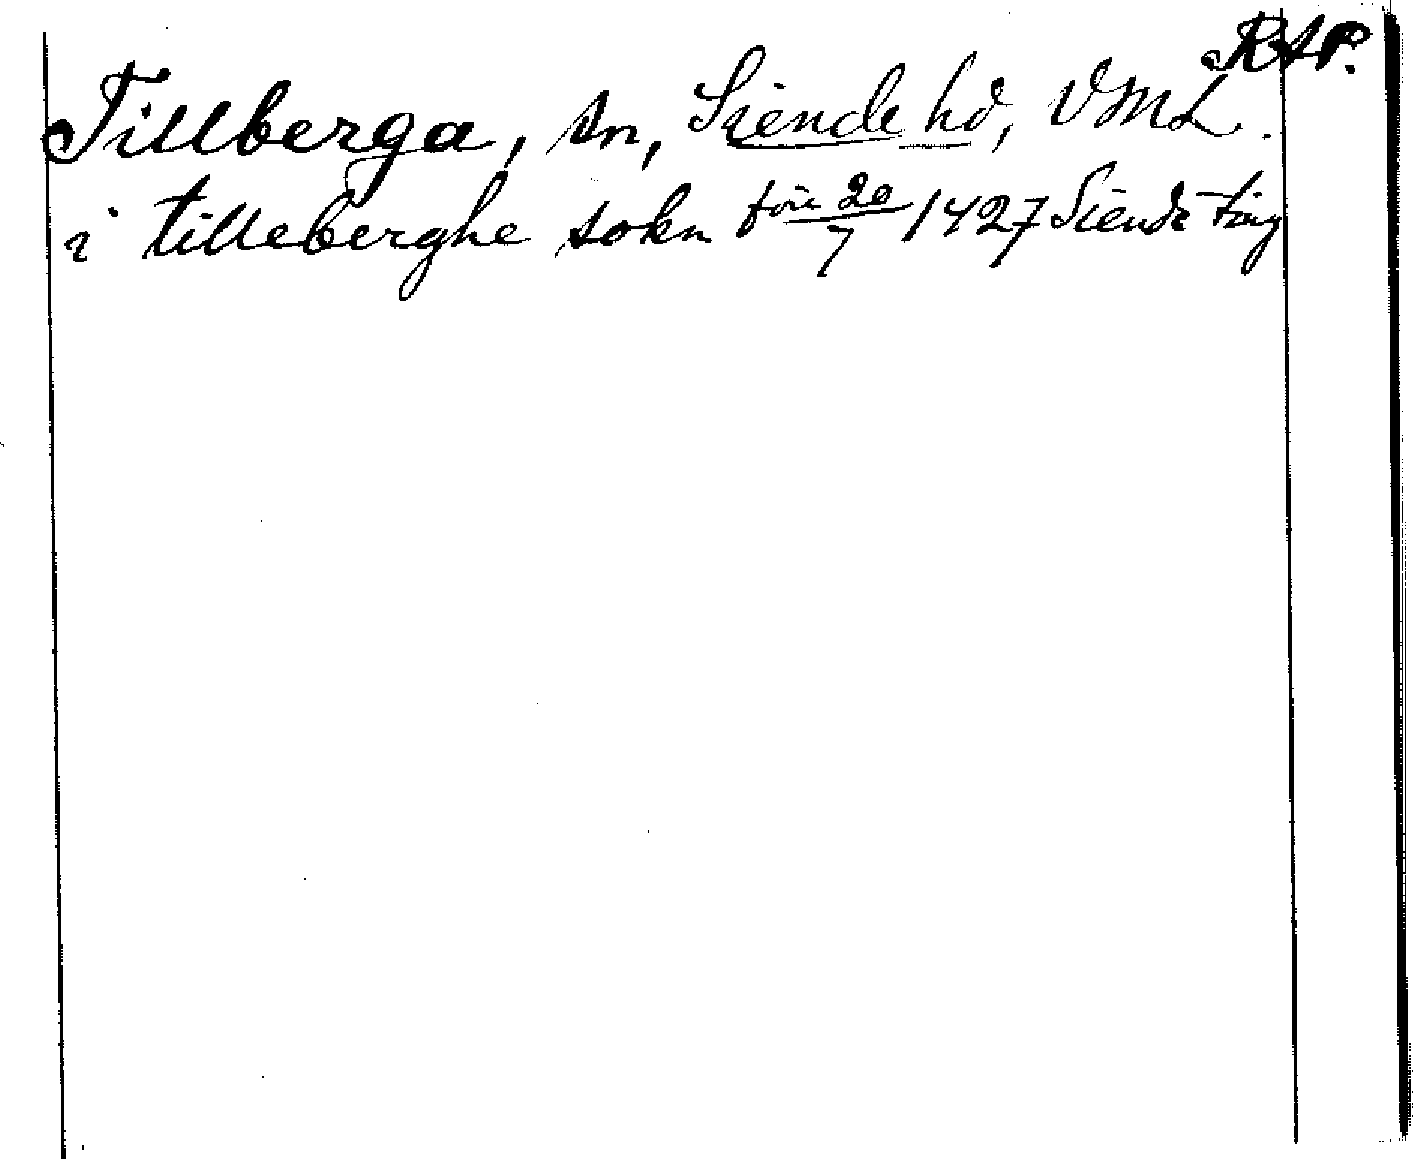 RAP.
Tillberga, sn, Siende hd, VML.
i tilleberghe sokn före 20/7 1427 Siende ting